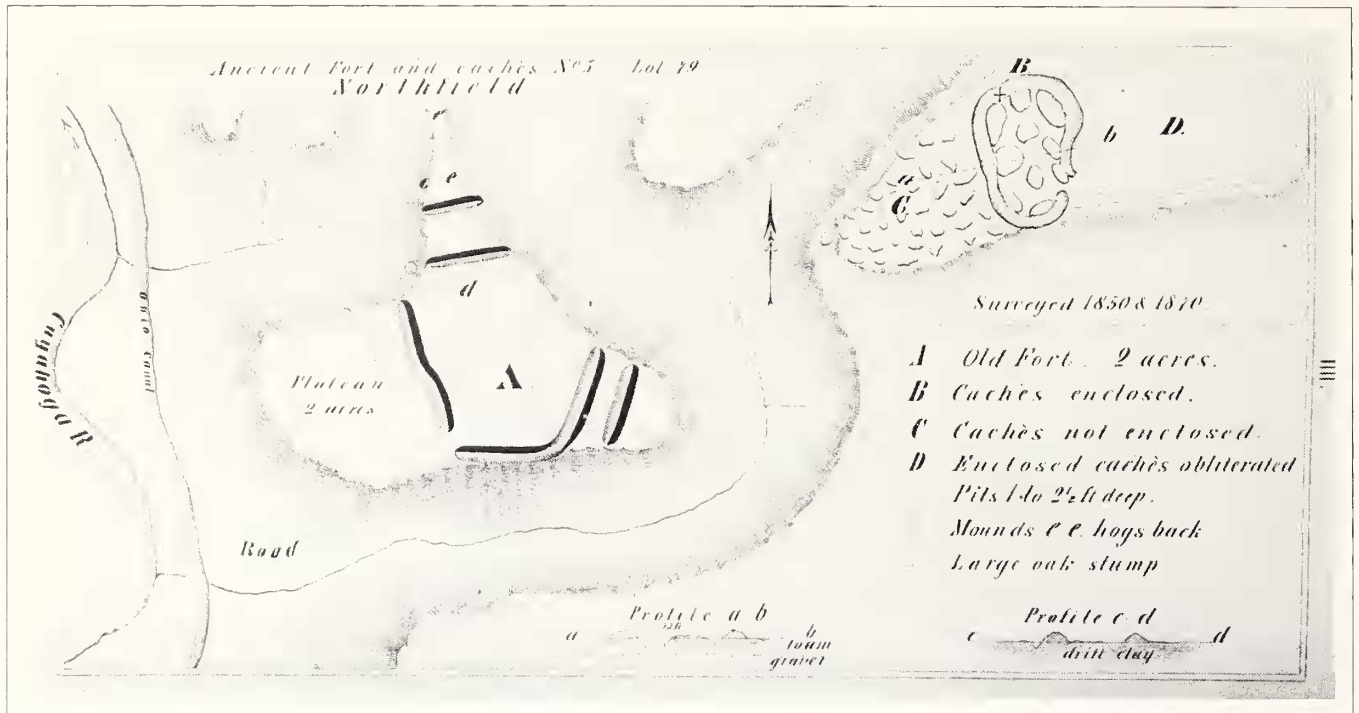 Ancient Fort and cachès No 5 Lot 79
Northfield
B
b
D.
c e
a
C
d
Cuyahoga R
Ohio Canal
Plateau
2 acres
A
Surveyed 1850 & 1870.
A Old Fort. 2 acres.
B Cachès enclosed.
C Cachès not enclosed.
D Enclosed cachès obliterated
Pits 1 to 2½ ft deep.
Mounds e e. hogs back
Large oak stump
Road
Profile a b
a
b
loam
gravel
Profile c d
c
d
drift clay